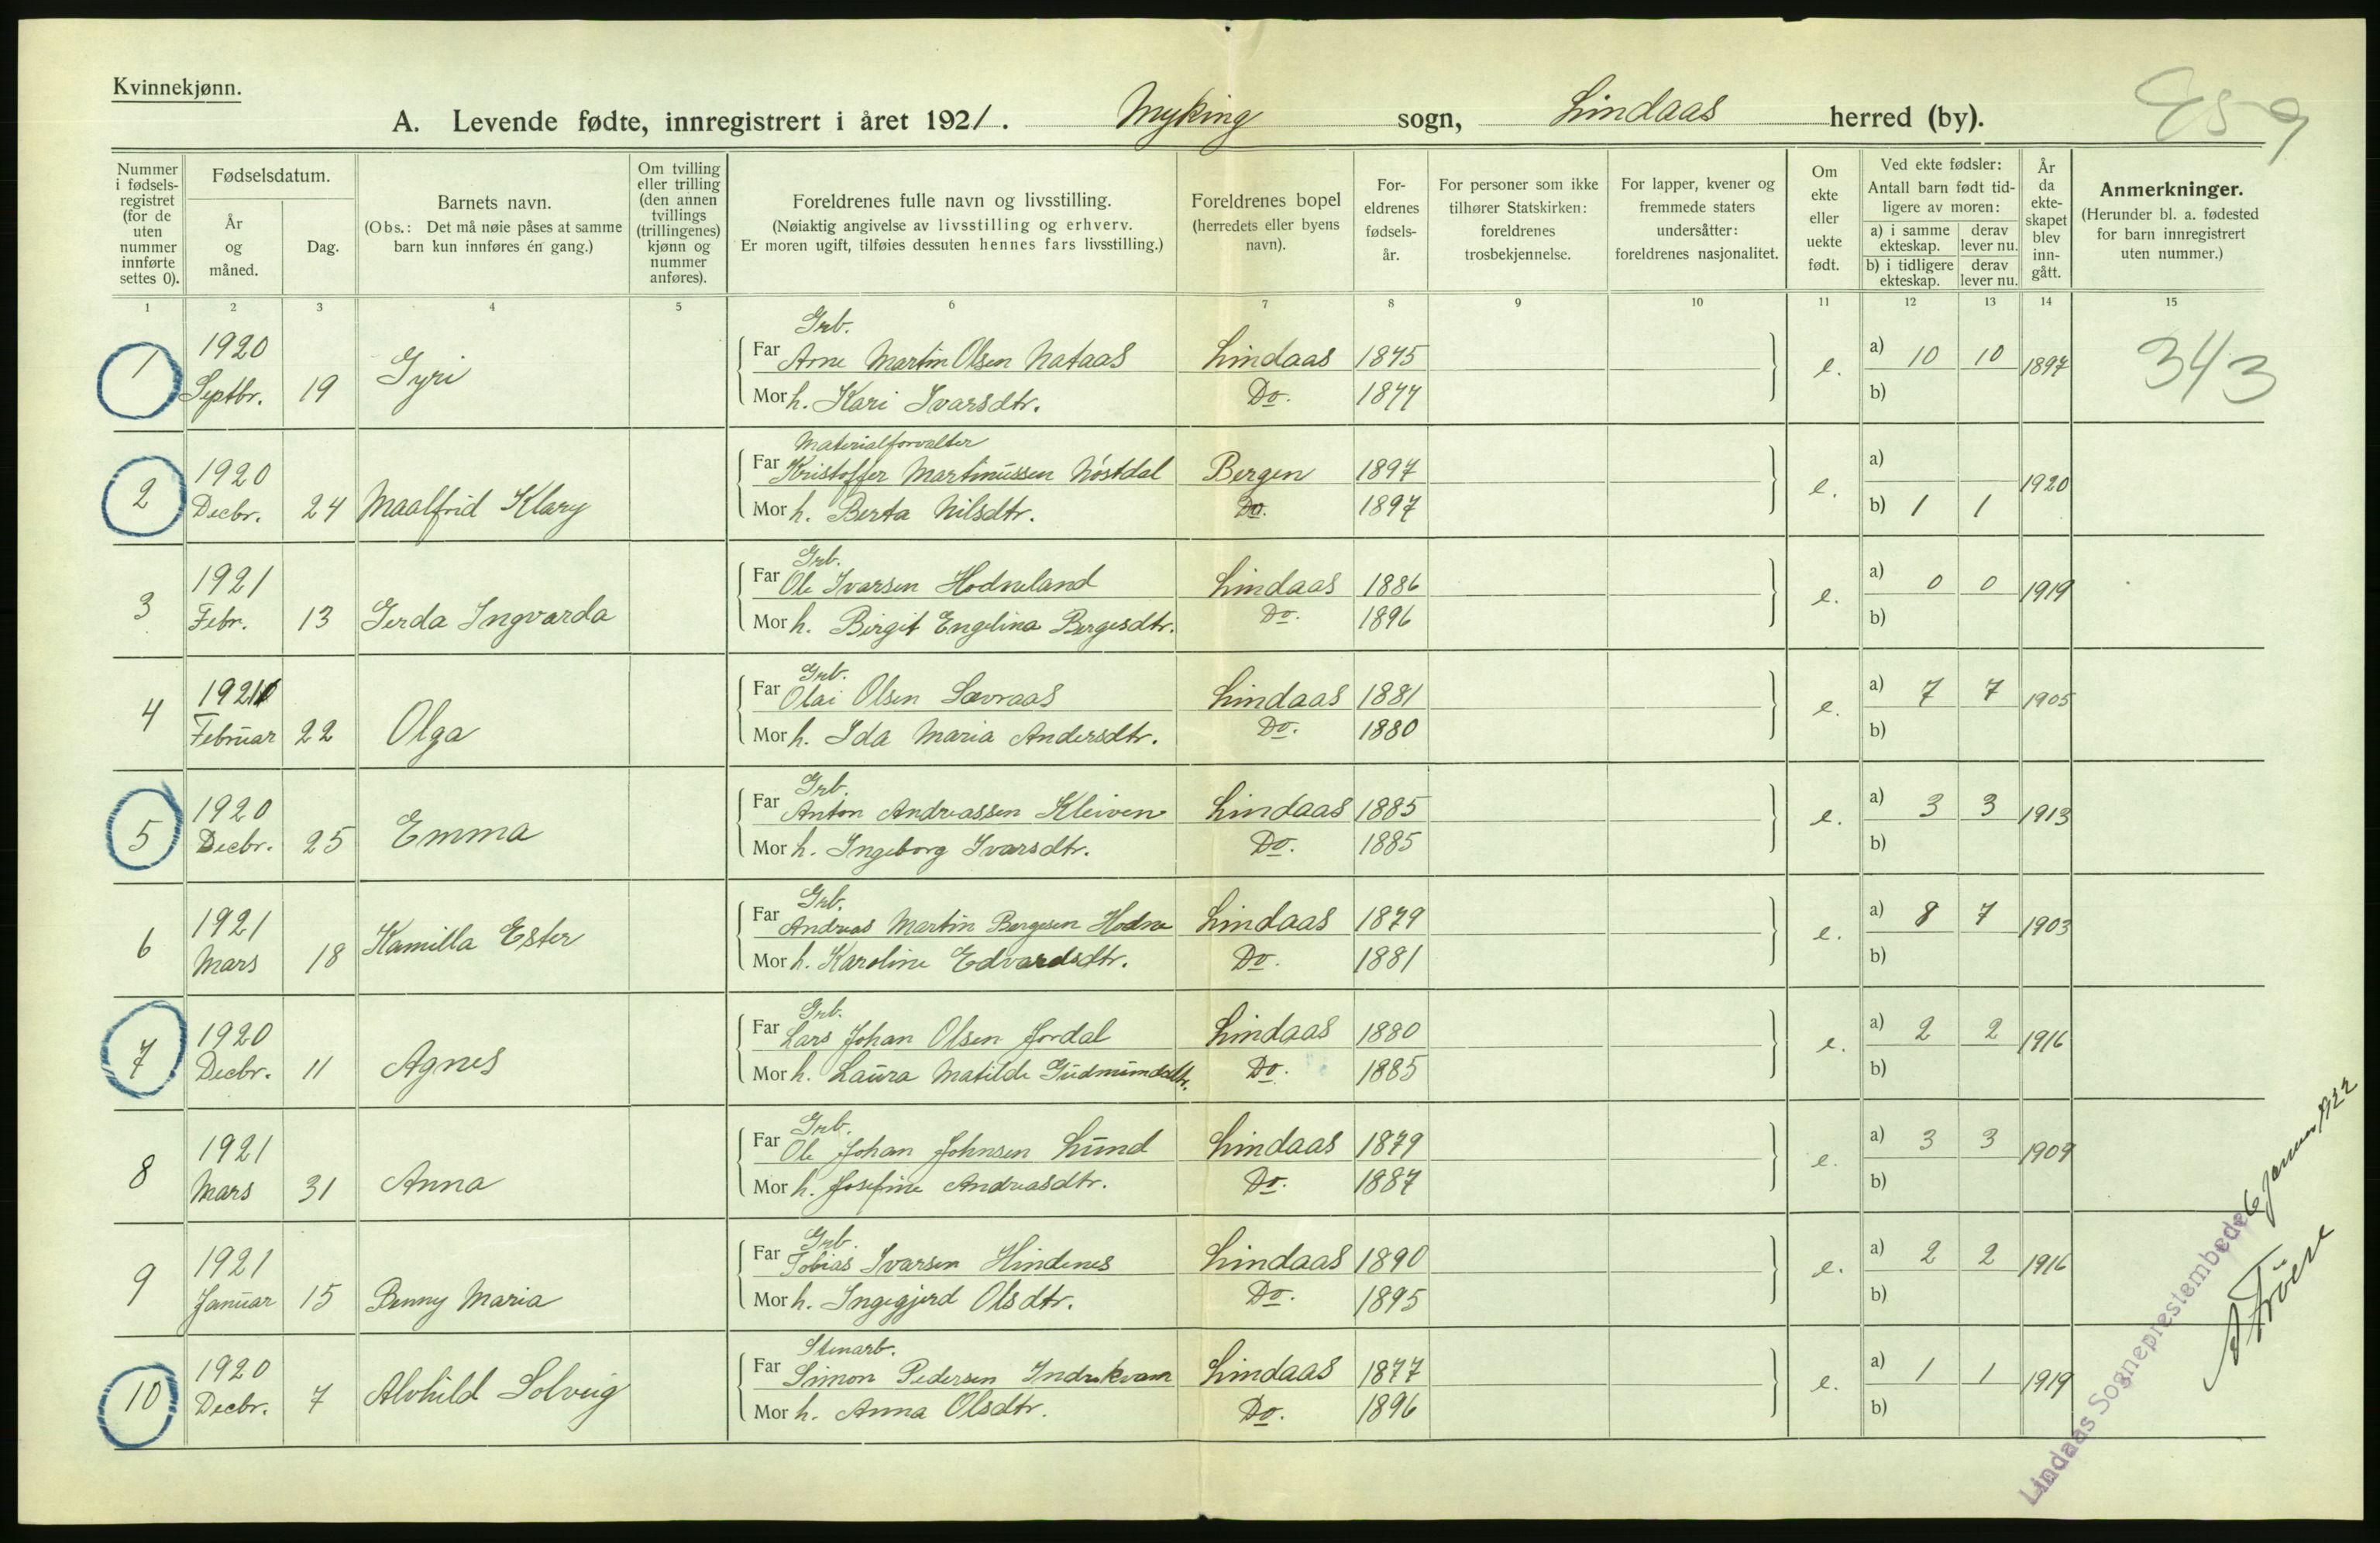 Kvinnekjønn.
A. Levende fødte, innregistrert i året 1921. Myking sogn, Lindaas herred (by).
Nummer i fødsels-registret (for de uten nummer innførte settes 0).
Fødselsdatum.
År og måned.
Dag.
Barnets navn.
(Obs.: Det må nøie påses at samme barn kun innføres én gang.)
Om tvilling eller trilling (den annen tvillings (trillingenes) kjønn og nummer anføres).
Foreldrenes fulle navn og livsstilling.
(Nøiaktig angivelse av livsstilling og erhverv. Er moren ugift, tilføies dessuten hennes fars livsstilling.)
Foreldrenes bopel (herredets eller byens navn).
For-eldrenes fødsels-år.
For personer som ikke tilhører Statskirken: foreldrenes trosbekjennelse.
For lapper, kvener og fremmede staters undersåtter: foreldrenes nasjonalitet.
Om ekte eller uekte født.
Ved ekte fødsler:
Antall barn født tid-ligere av moren:
a) i samme ekteskap.
derav lever nu.
b) i tidligere ekteskap.
derav lever nu.
År da ekte-skapet blev inn-gått.
Anmerkninger.
(Herunder bl. a. fødested for barn innregistrert uten nummer.)
1 2 3 4 5 6 7 8 9 10 11 12 13 14 15
Grb.
1 1920 Septbr. 19 Gyri Far Arne Martin Olsen Nataas Lindaas 1875 e. a) 10 10 1897 343
Mor h. Kari Ivarsdtr. Do. 1877 b)
Materialforvalter
2 1920 Decbr. 24 Maalfrid Klary Far Kristoffer Martinussen Nøstdal Bergen 1897 e. a) 1920
Mor h. Berta Nilsdtr. Do. 1897 b) 1 1
Grb.
3 1921 Febr. 13 Gerda Ingvarda Far Ole Ivarsen Hodneland Lindaas 1886 e. a) 0 0 1919
Mor h. Birgit Engelina Bergesdtr. Do. 1896 b)
Grb.
4 1921 Februar 22 Olga Far Olai Olsen Sævraas Lindaas 1881 e. a) 7 7 1905
Mor h. Ida Maria Andersdtr. Do. 1880 b)
Grb.
5 1920 Decbr. 25 Emma Far Anton Andreassen Kleiven Lindaas 1885 e. a) 3 3 1913
Mor h. Ingeborg Ivarsdtr. Do. 1885 b)
Grb.
6 1921 Mars 18 Kamilla Ester Far Andreas Martin Bergesen Hodne Lindaas 1879 e. a) 8 7 1903
Mor h. Karoline Edvardsdtr. Do. 1881 b)
Grb.
7 1920 Decbr. 11 Agnes Far Lars Johan Olsen Fordal Lindaas 1880 e. a) 2 2 1916
Mor h. Laura Matilde Gudmundsdtr. Do. 1885 b)
Grb.
8 1921 Mars 31 Anna Far Ole Johan Johnsen Lund Lindaas 1879 e. a) 3 3 1909
Mor h. Josefine Andreasdtr. Do. 1887 b)
Grb.
9 1921 Januar 15 Benny Maria Far Tobias Ivarsen Hindenes Lindaas 1890 e. a) 2 2 1916
Mor h. Ingegjerd Olsdtr. Do. 1895 b)
Stenarb.
10 1920 Decbr. 7 Alvhild Solveig Far Simon Pedersen Indrekvam Lindaas 1877 e. a) 1 1 1919
Mor h. Anna Olsdtr. Do. 1896 b)
Lindaas Sogneprestembede 6 Januar 1922